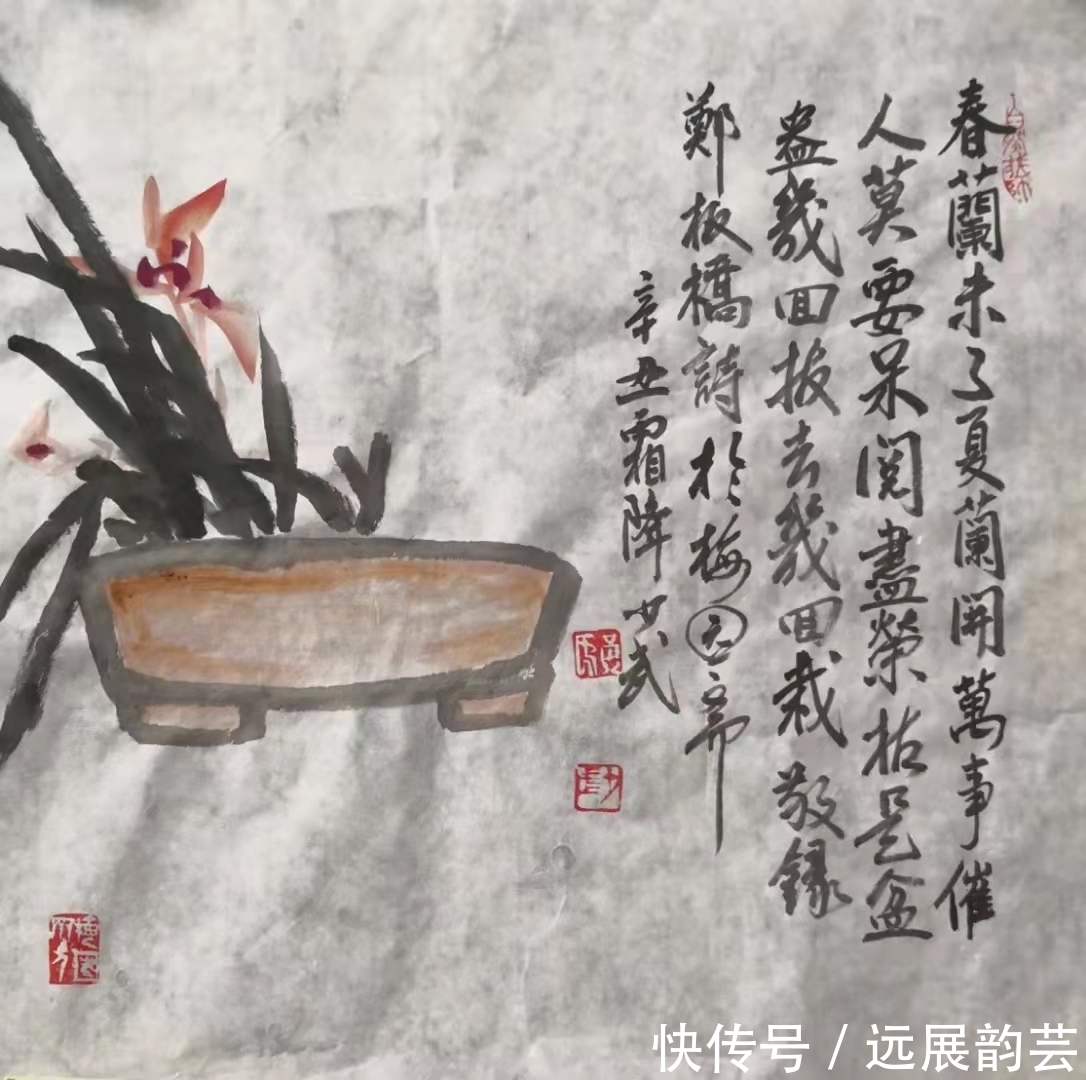 春蘭未了夏蘭開萬事催
人莫要呆閱盡榮枯是盆
盎幾回拔去幾回栽敬録
鄭板橋詩於梅园齋
辛丑霜降少武
快传号 / 远展韵芸